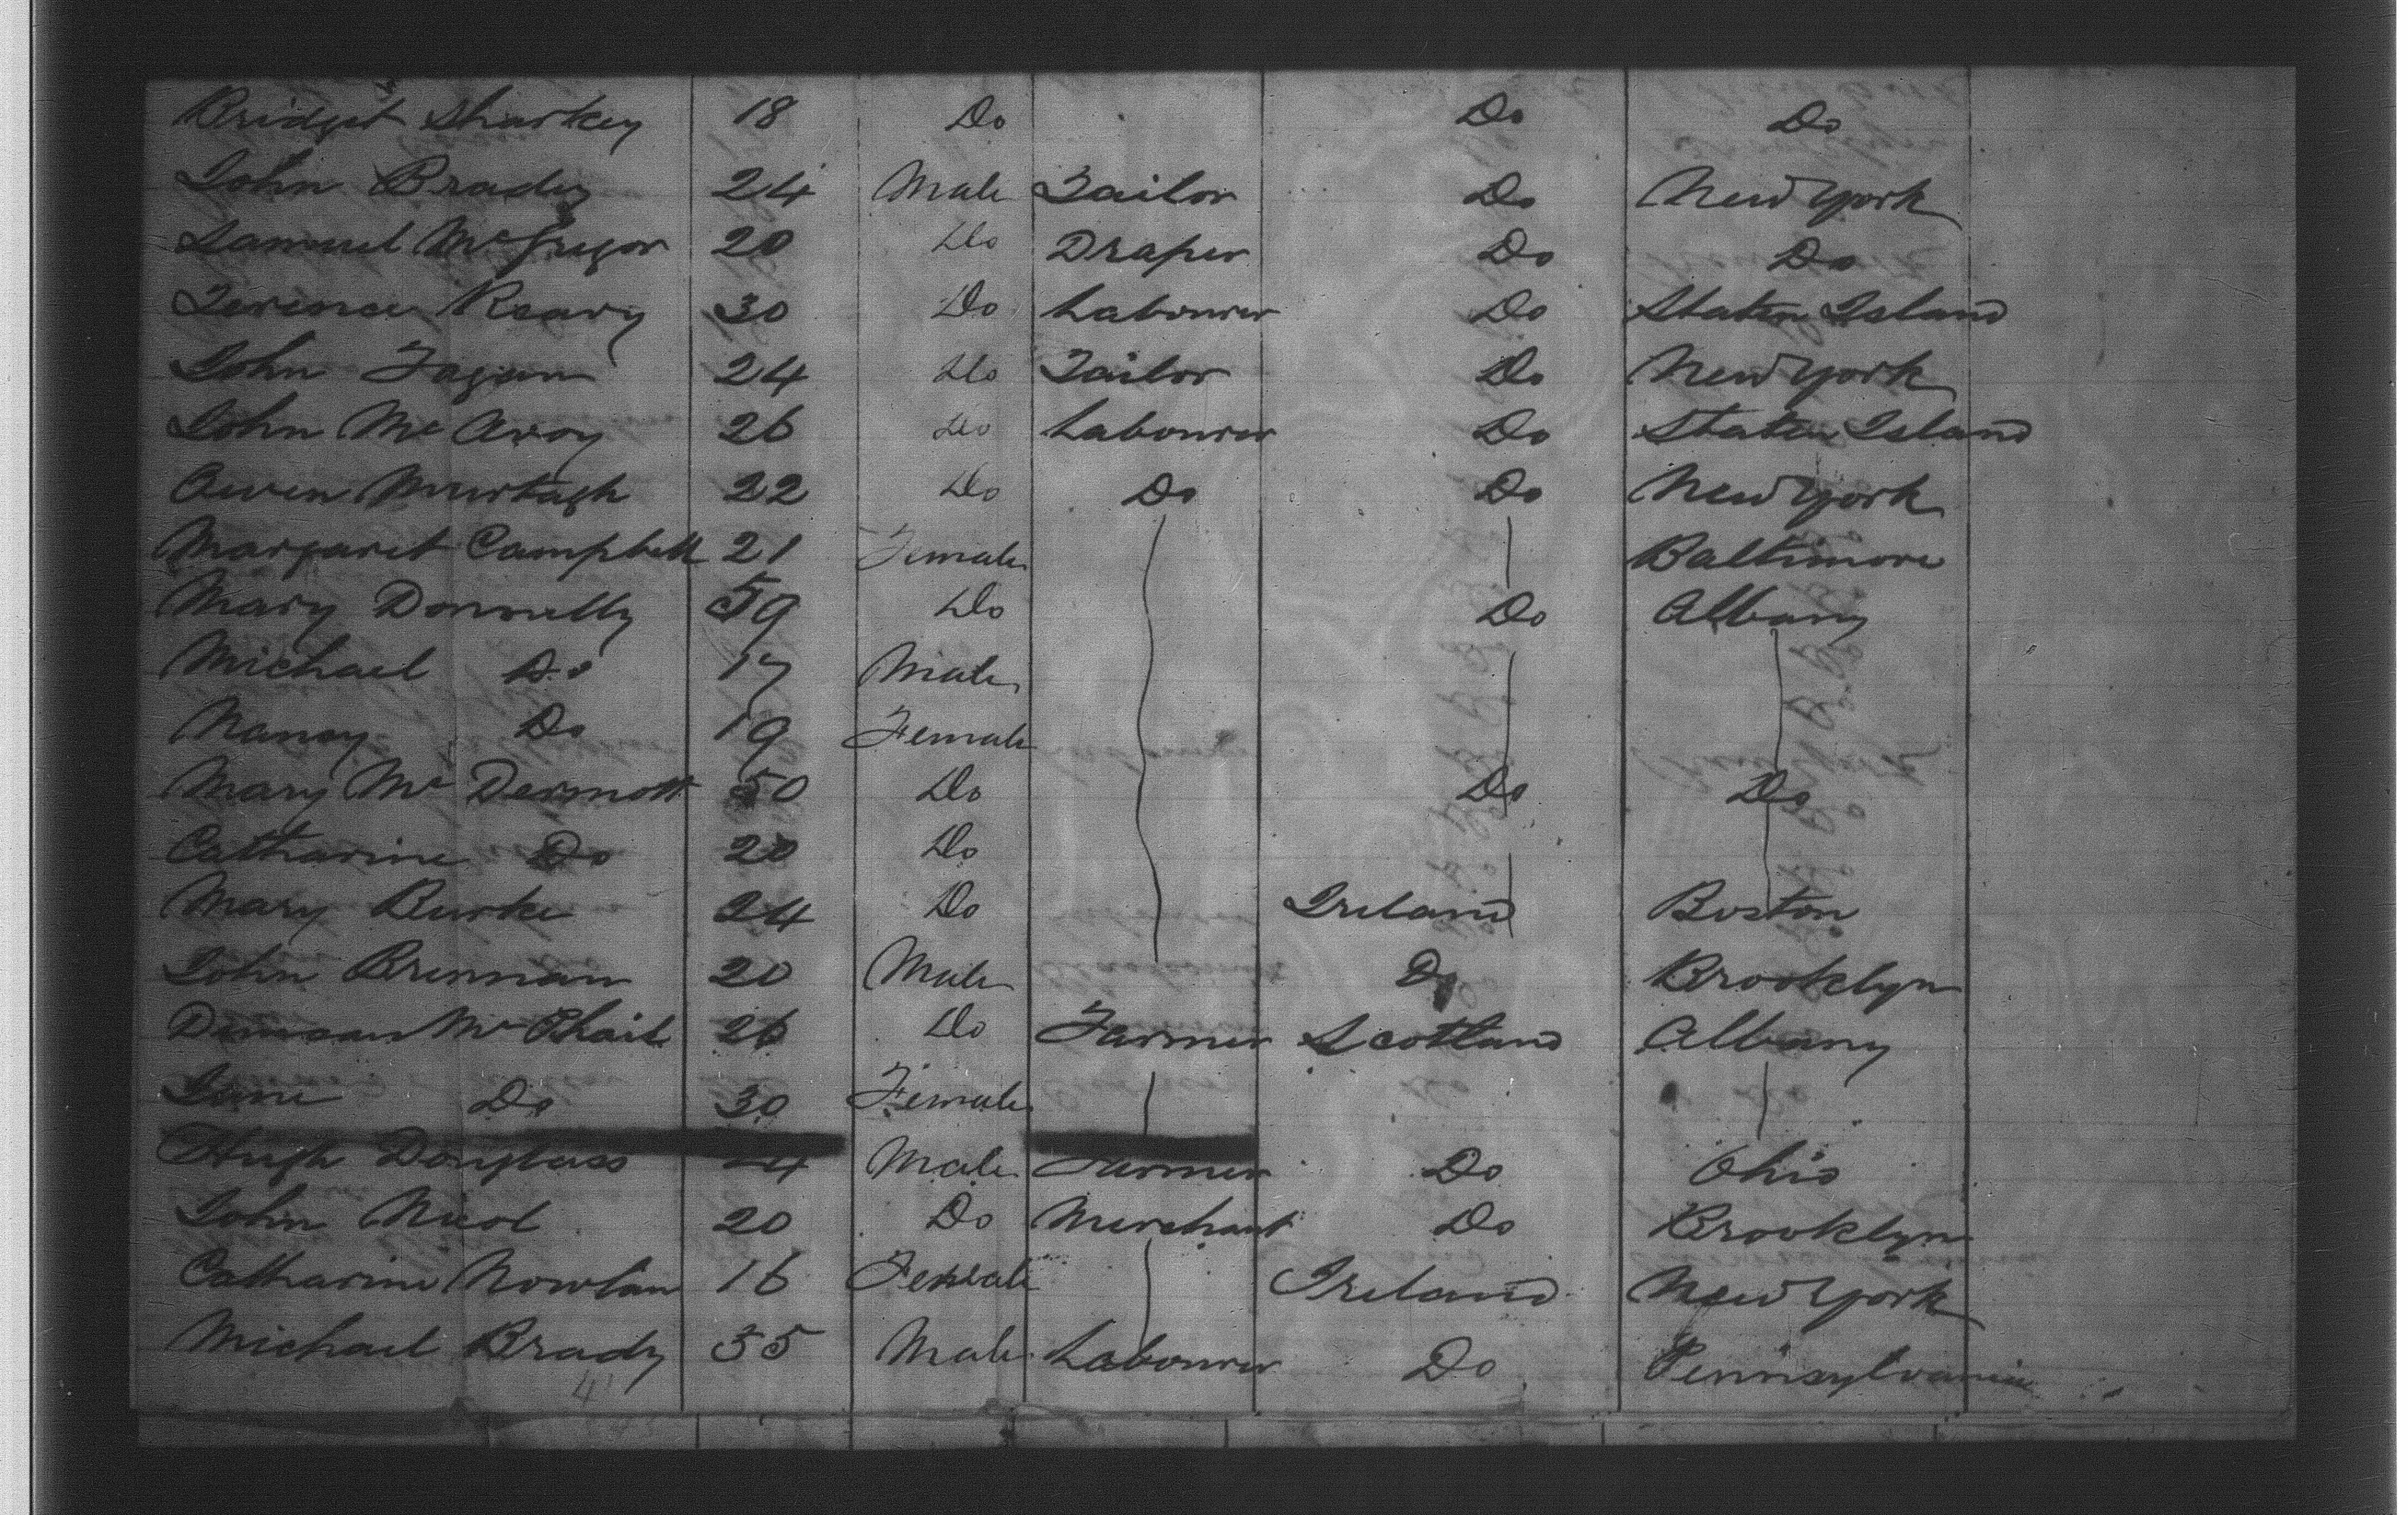 Bridget Sharkey 18 Do Do Do
John Brady 24 Male Tailor Do New York
Samuel McGregor 20 Do Draper Do Do
Terence Reavy 30 Do Labourer Do Staten Island
John Fagan 24 Do Tailor Do New York
John McAvoy 26 Do Labourer Do Staten Island
Owen Murtagh 22 Do Do Do New York
Margaret Campbell 21 Female Baltimore
Mary Donnelly 59 Do Do Albany
Michael Do 17 Male
Nancy Do 19 Female
Mary McDermott 50 Do Do Do
Catharine Do 20 Do
Mary Burke 24 Do Ireland Boston
John Brennan 20 Male Do Brooklyn
Duncan McPhail 26 Do Farmer Scotland Albany
Jane Do 30 Female
Hugh Douglass Male Farmer Do Ohio
John Nicol 20 Do Merchant Do Brooklyn
Catharine Nowlan 16 Female Ireland New York
Michael Brady 35 Male Labourer Do Pennsylvania